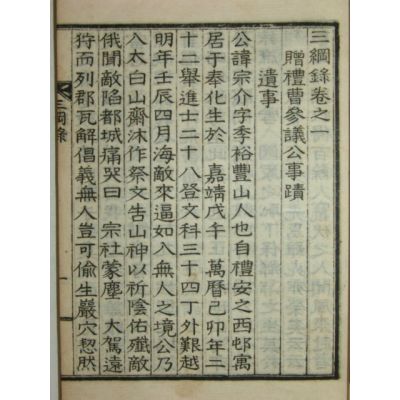 三綱錄卷之一
贈禮曹參議公事蹟
遺事
公諱宗介字季裕豐山人也自禮安之西邨寓
居于奉化生於 嘉靖戊午 萬曆己卯年二
十二舉進士二十八登文科三十四丁外艱越
明年壬辰四月海敵來逼如入無人之境公乃
入太白山齋沐作祭文告山神以祈陰佑殲敵
俄聞敵陷都城痛哭曰 宗社蒙塵 大駕遠
狩而列郡瓦解倡義無人豈可偷生巖穴恝然
三綱錄 一